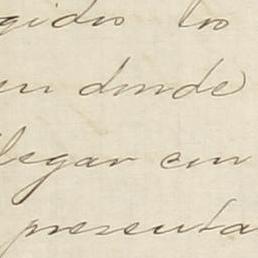 gidio los
en donde
llegar con
presenta